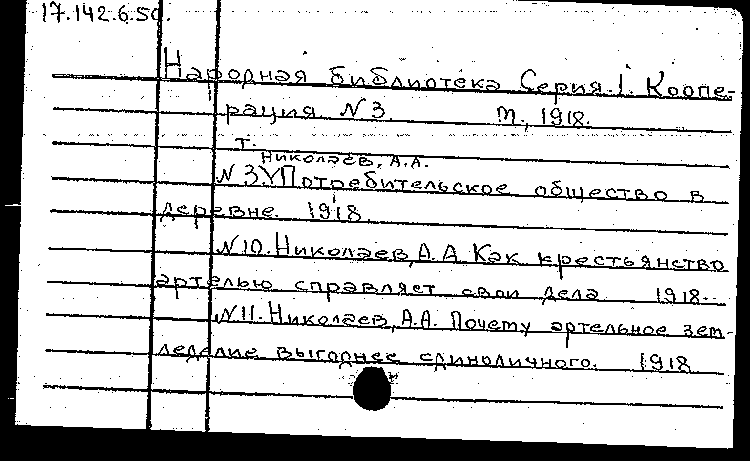 17.142.6.50.
Народная библиотека Серия. I. Коопе-
рация N 3. М., 1918.
т.
Николаев, А.А.
N 3.VПотребительское общество в
деревне. 1918.
N10. Николаев, А.А. Как крестьянство
артелью справляет свои дела. 1918.
N11. Николаев, А.А. Почему артельное зем-
леделие выгоднее единоличного. 1918